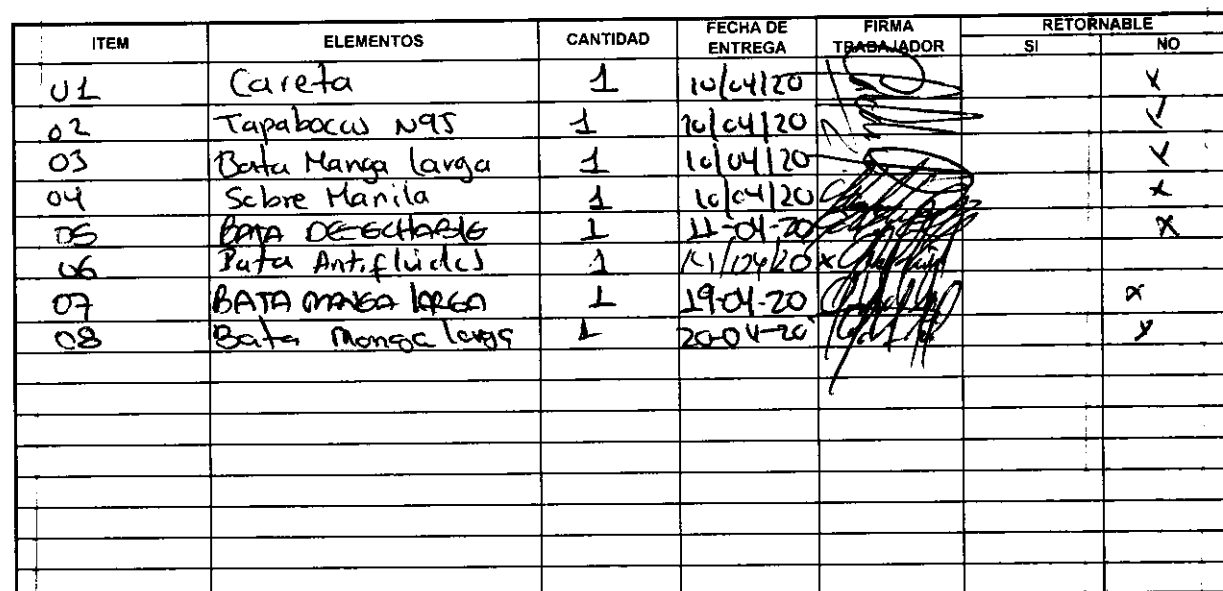 ITEM ELEMENTOS CANTIDAD FECHA DE ENTREGA FIRMA TRABAJADOR RETORNABLE SI NO
01 Careta 1 10/04/20 x
02 Tapabocas N95 1 10/04/20
03 Bata Manga larga 1 10/04/20 x
04 Sobre Manila 1 10/04/20 x
05 BATA DESECHABLE 1 11-04-20 x
06 Bata Antifluidos 1 /04/20 x
07 BATA MANGA LARGA 1 19-04-20 x
08 Bata Manga larga 1 20-04-20 x